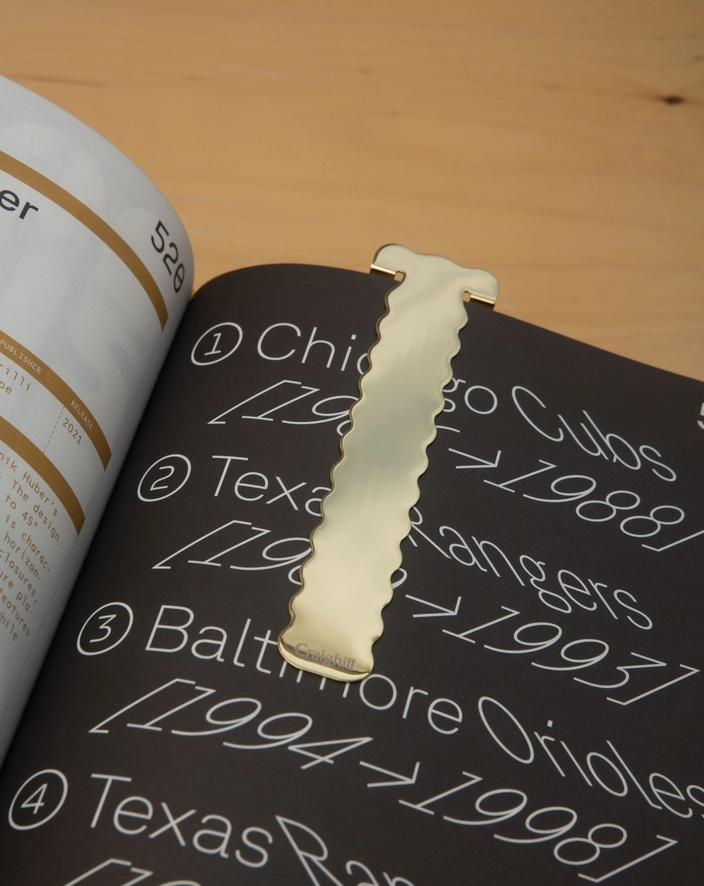 er
520
PUBLISHER
RELEASE
2021
nik Huber's
The design
to 45°
is charac-
horizon-
closures,
features
while
① Chicago Cubs
[19 →1988]
② Texas Rangers
[19 →1993]
③ Baltimore Orioles
[1994→1998]
④ Texas Ran
Craighill